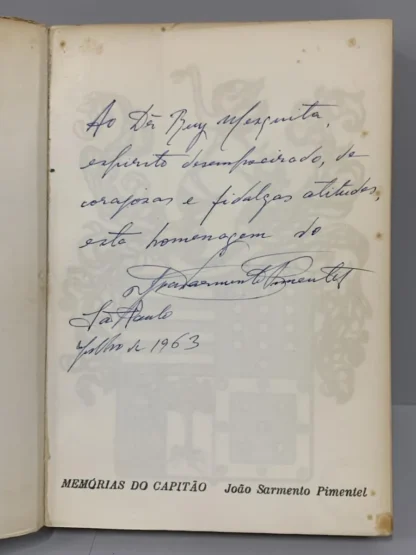 Ao Dr. Ruy Mesquita,
espirito desempoeirado, de
corajosas e fidalgas atitudes,
esta homenagem do
João Sarmento Pimentel
São Paulo
Julho de 1963
MEMÓRIAS DO CAPITÃO João Sarmento Pimentel